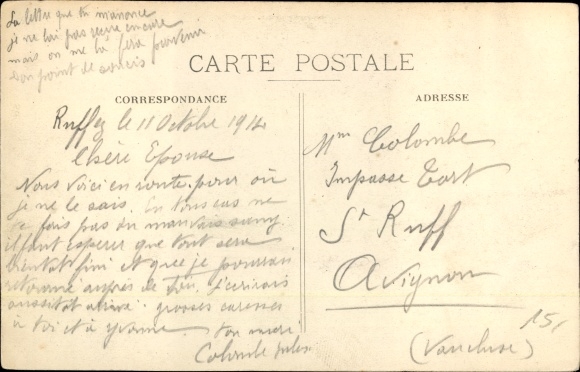 La lettre que tu m'anonce
je ne l'ai pas reçue encore
mais on me la fera parvenir
donc point de soucis
CARTE POSTALE
CORRESPONDANCE
ADRESSE
Ruffey le 11 Octobre 1914
Chère Epouse
Nous voici en route pour où
je ne le sais. En tous cas ne
te fais pas du mauvais sang
il faut esperer que tout sera
bientot fini et que je pourrai
retourné aupres de toi. J'ecrirais
aussitot arrivé. grosses caresses
à toi et à Yvonne. ton mari
Colombe Jules
Mme Colombe
Impasse Tort
St Ruff
Avignon
(Vaucluse)
15,